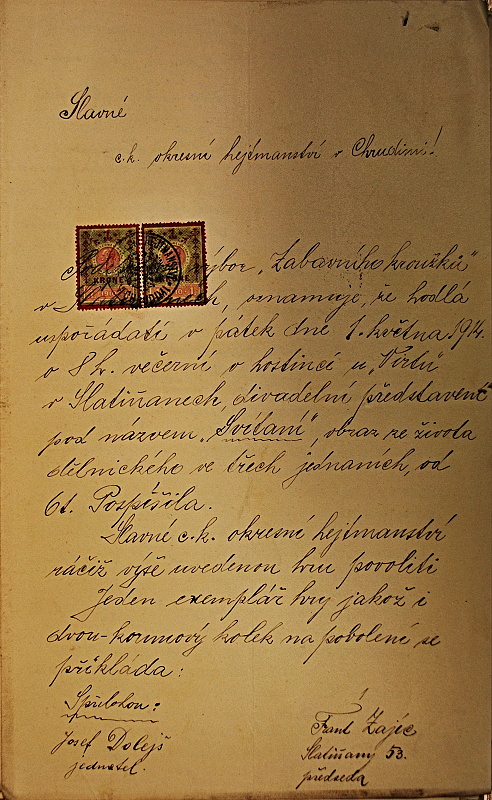 Slavné
c.k. okresní hejtmanství v Chrudimi!
výbor „Zábavního kroužku"
v oznamuje, že hodlá
uspořádati v pátek dne 1. května 1914.
o 8 h. večerní v hostinci u „Virtů"
v Slatiňanech, divadelní představení
pod názvem „Svítání", obraz ze života
dělnického ve třech jednáních, od
Pospíšila.
Slavné c.k. okresní hejtmanství
ráčiž výše uvedenou hru povoliti
Jeden exemplář hry jakož i
dvou-korunový kolek na povolení se
přikládá:
Spřílohou:
Josef Dolejš
jednatel.
Frant Zajíc
Slatiňany 53.
předseda